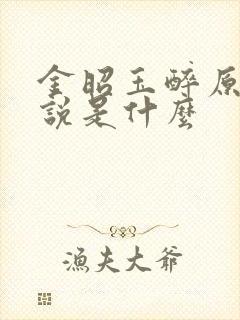 金昭玉醉原
說是什麼
漁夫大爺